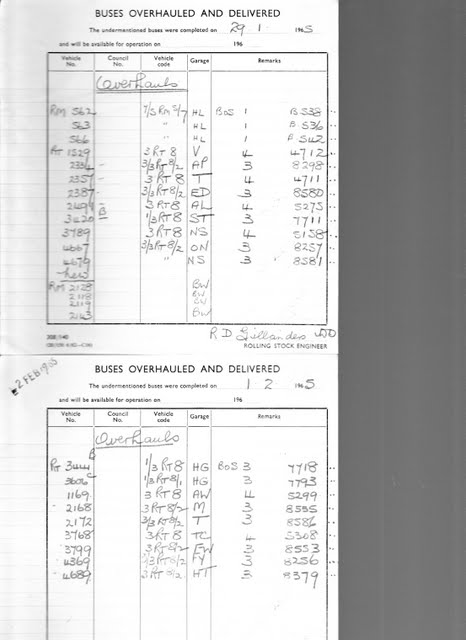 BUSES OVERHAULED AND DELIVERED
The undermentioned buses were completed on 29 . 1 . 1965
and will be available for operation on 196
Vehicle No. Council No. Vehicle code Garage Remarks
Overhauls
RM 562 7/5 RM 5/7 HL BOS 1 B 538
563 " HL 1 B 536
566 " HL 1 B 542
RT 1529 3 RT 8 V 4 4712
2334 3/3 RT 8/2 AP 3 8298
2357 3 RT 8 T 4 4711
2387 3/3 RT 8/2 ED 3 8580
2499 3 RT 8 AL 4 5275
3420 B 1/3 RT 8 ST 3 7711
3789 3 RT 8 NS 4 5138
4667 3/3 RT 8/2 ON 3 8257
4679 " NS 3 8581
New
RM 2128 BW
2118 BW
2119 BW
2143 BW
R D Gillanders
ROLLING STOCK ENGINEER
2 FEB 1965
BUSES OVERHAULED AND DELIVERED
The undermentioned buses were completed on 1 2 1965
and will be available for operation on 196
Vehicle No. Council No. Vehicle code Garage Remarks
Overhauls
RT 3444 B 1/3 RT 8 HG BOS 3 7718
3606 C 1/3 RT 8/1 HG 3 7793
1169 3 RT 8 AW 4 5299
2168 3 RT 8/2 M 3 8535
2172 3/3 RT 8/2 T 3 8586
3768 3 RT 8 TC 4 5308
3799 3 RT 8/2 EW 3 8553
4369 3/3 RT 8/2 FY 3 8256
4689 3 RT 8/2 HT 3 8379